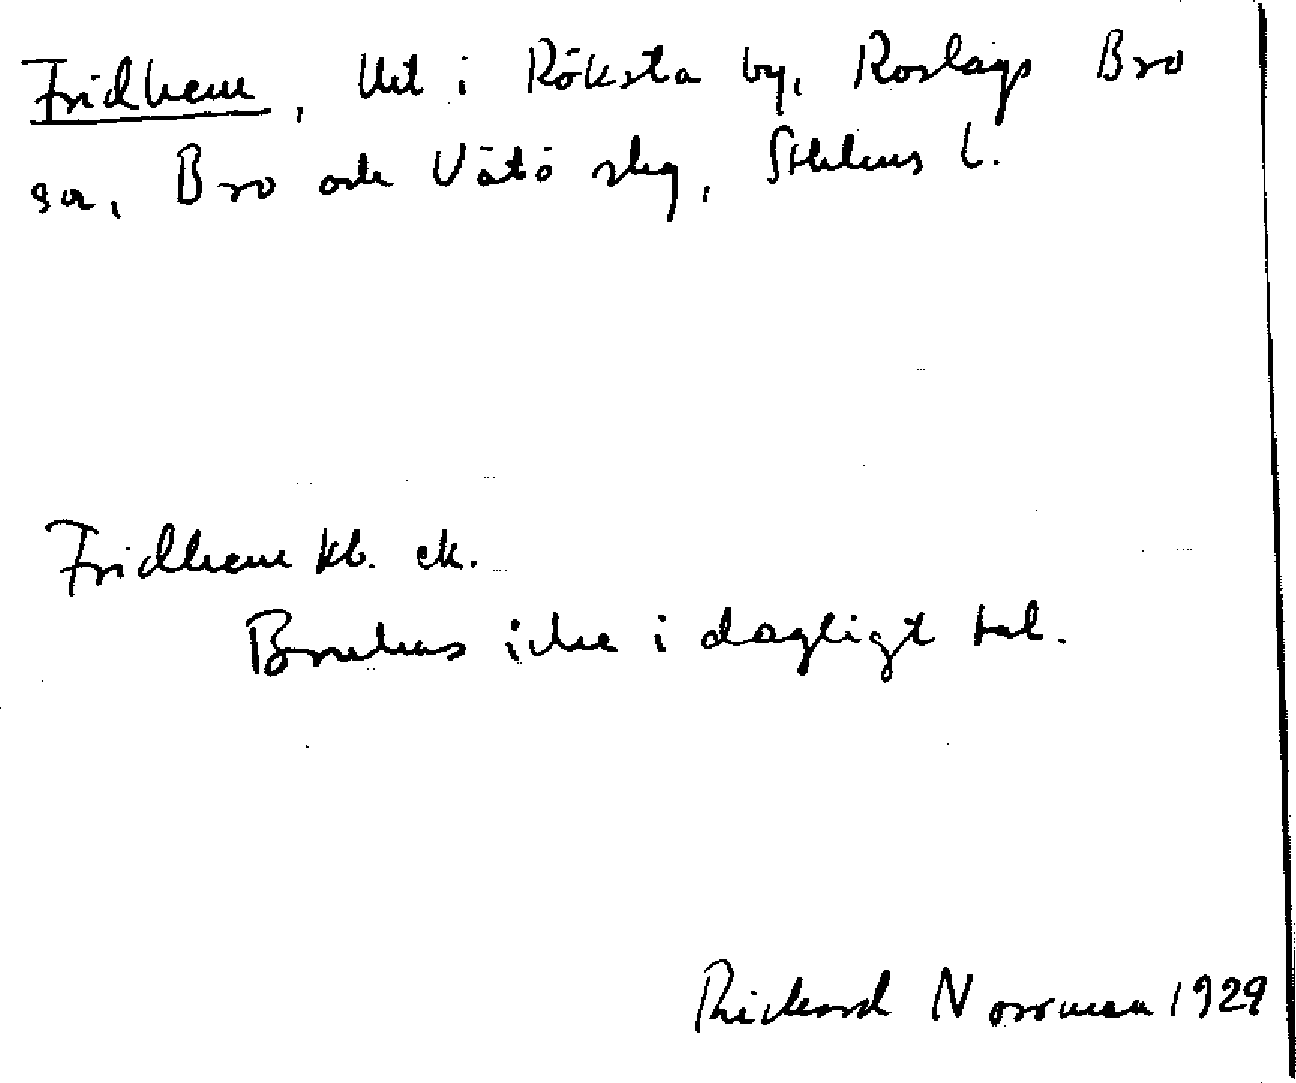 Fridhem, lht i Röksta by, Roslags Bro
sn, Bro och Vätö skg, Sthlms l.
Fridhem kb. ek.
Brukas icke i dagligt tal.
Rickard Norrman 1929